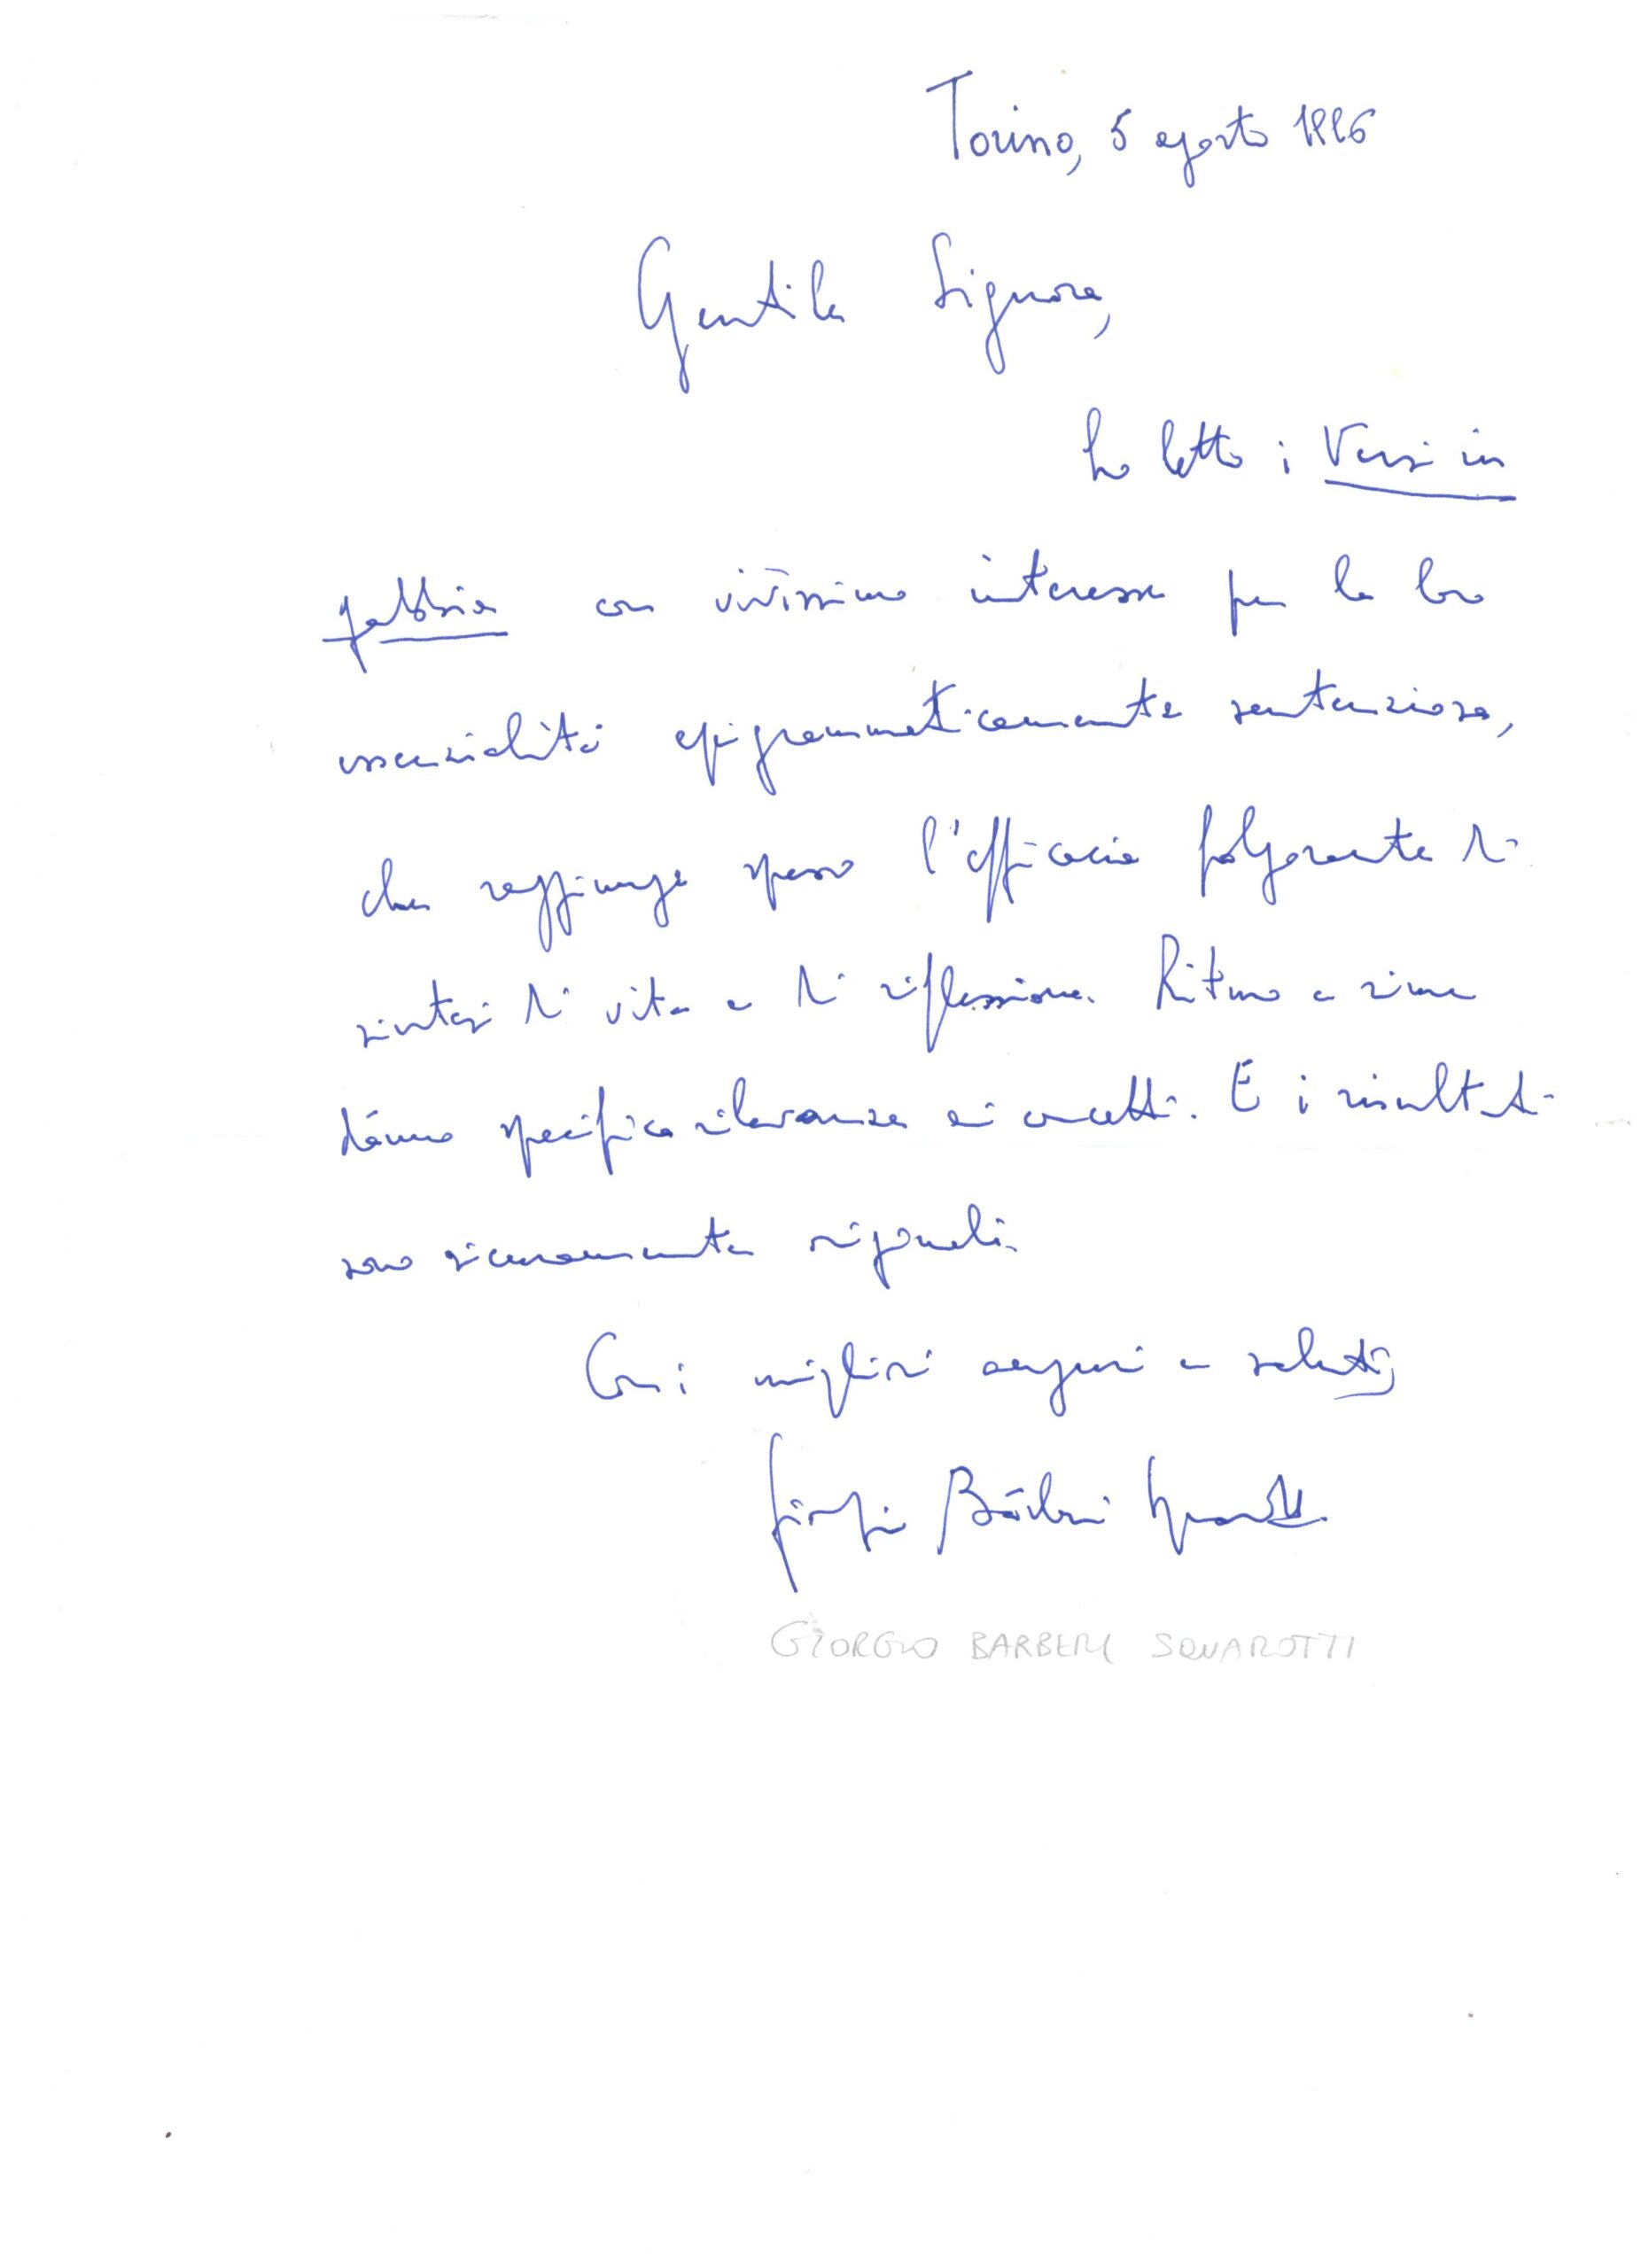 Torino, 5 agosto 1986
Gentile Signora,
ho letto i Versi in
gabbia con vivissimo interesse per la loro
essenzialità epigrammaticamente sentenziosa,
che raggiunge spesso l'efficacia folgorante di
sintesi di vita e di riflessione. Ritmo e rime
danno specifica rilevanza ai concetti. E i risultati
sono sicuramente originali.
Con i migliori auguri e saluti
Giorgio Bàrberi Squarotti
GIORGIO BARBERI SQUAROTTI